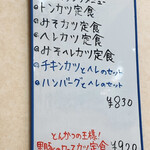 ・トンカツ定食
・みそカツ定食
・ヘレカツ定食
・みそヘレカツ定食
・チキンカツとヘレのセット
・ハンバーグとヘレのセット
¥830
とんかつの王様!
定食 ¥920